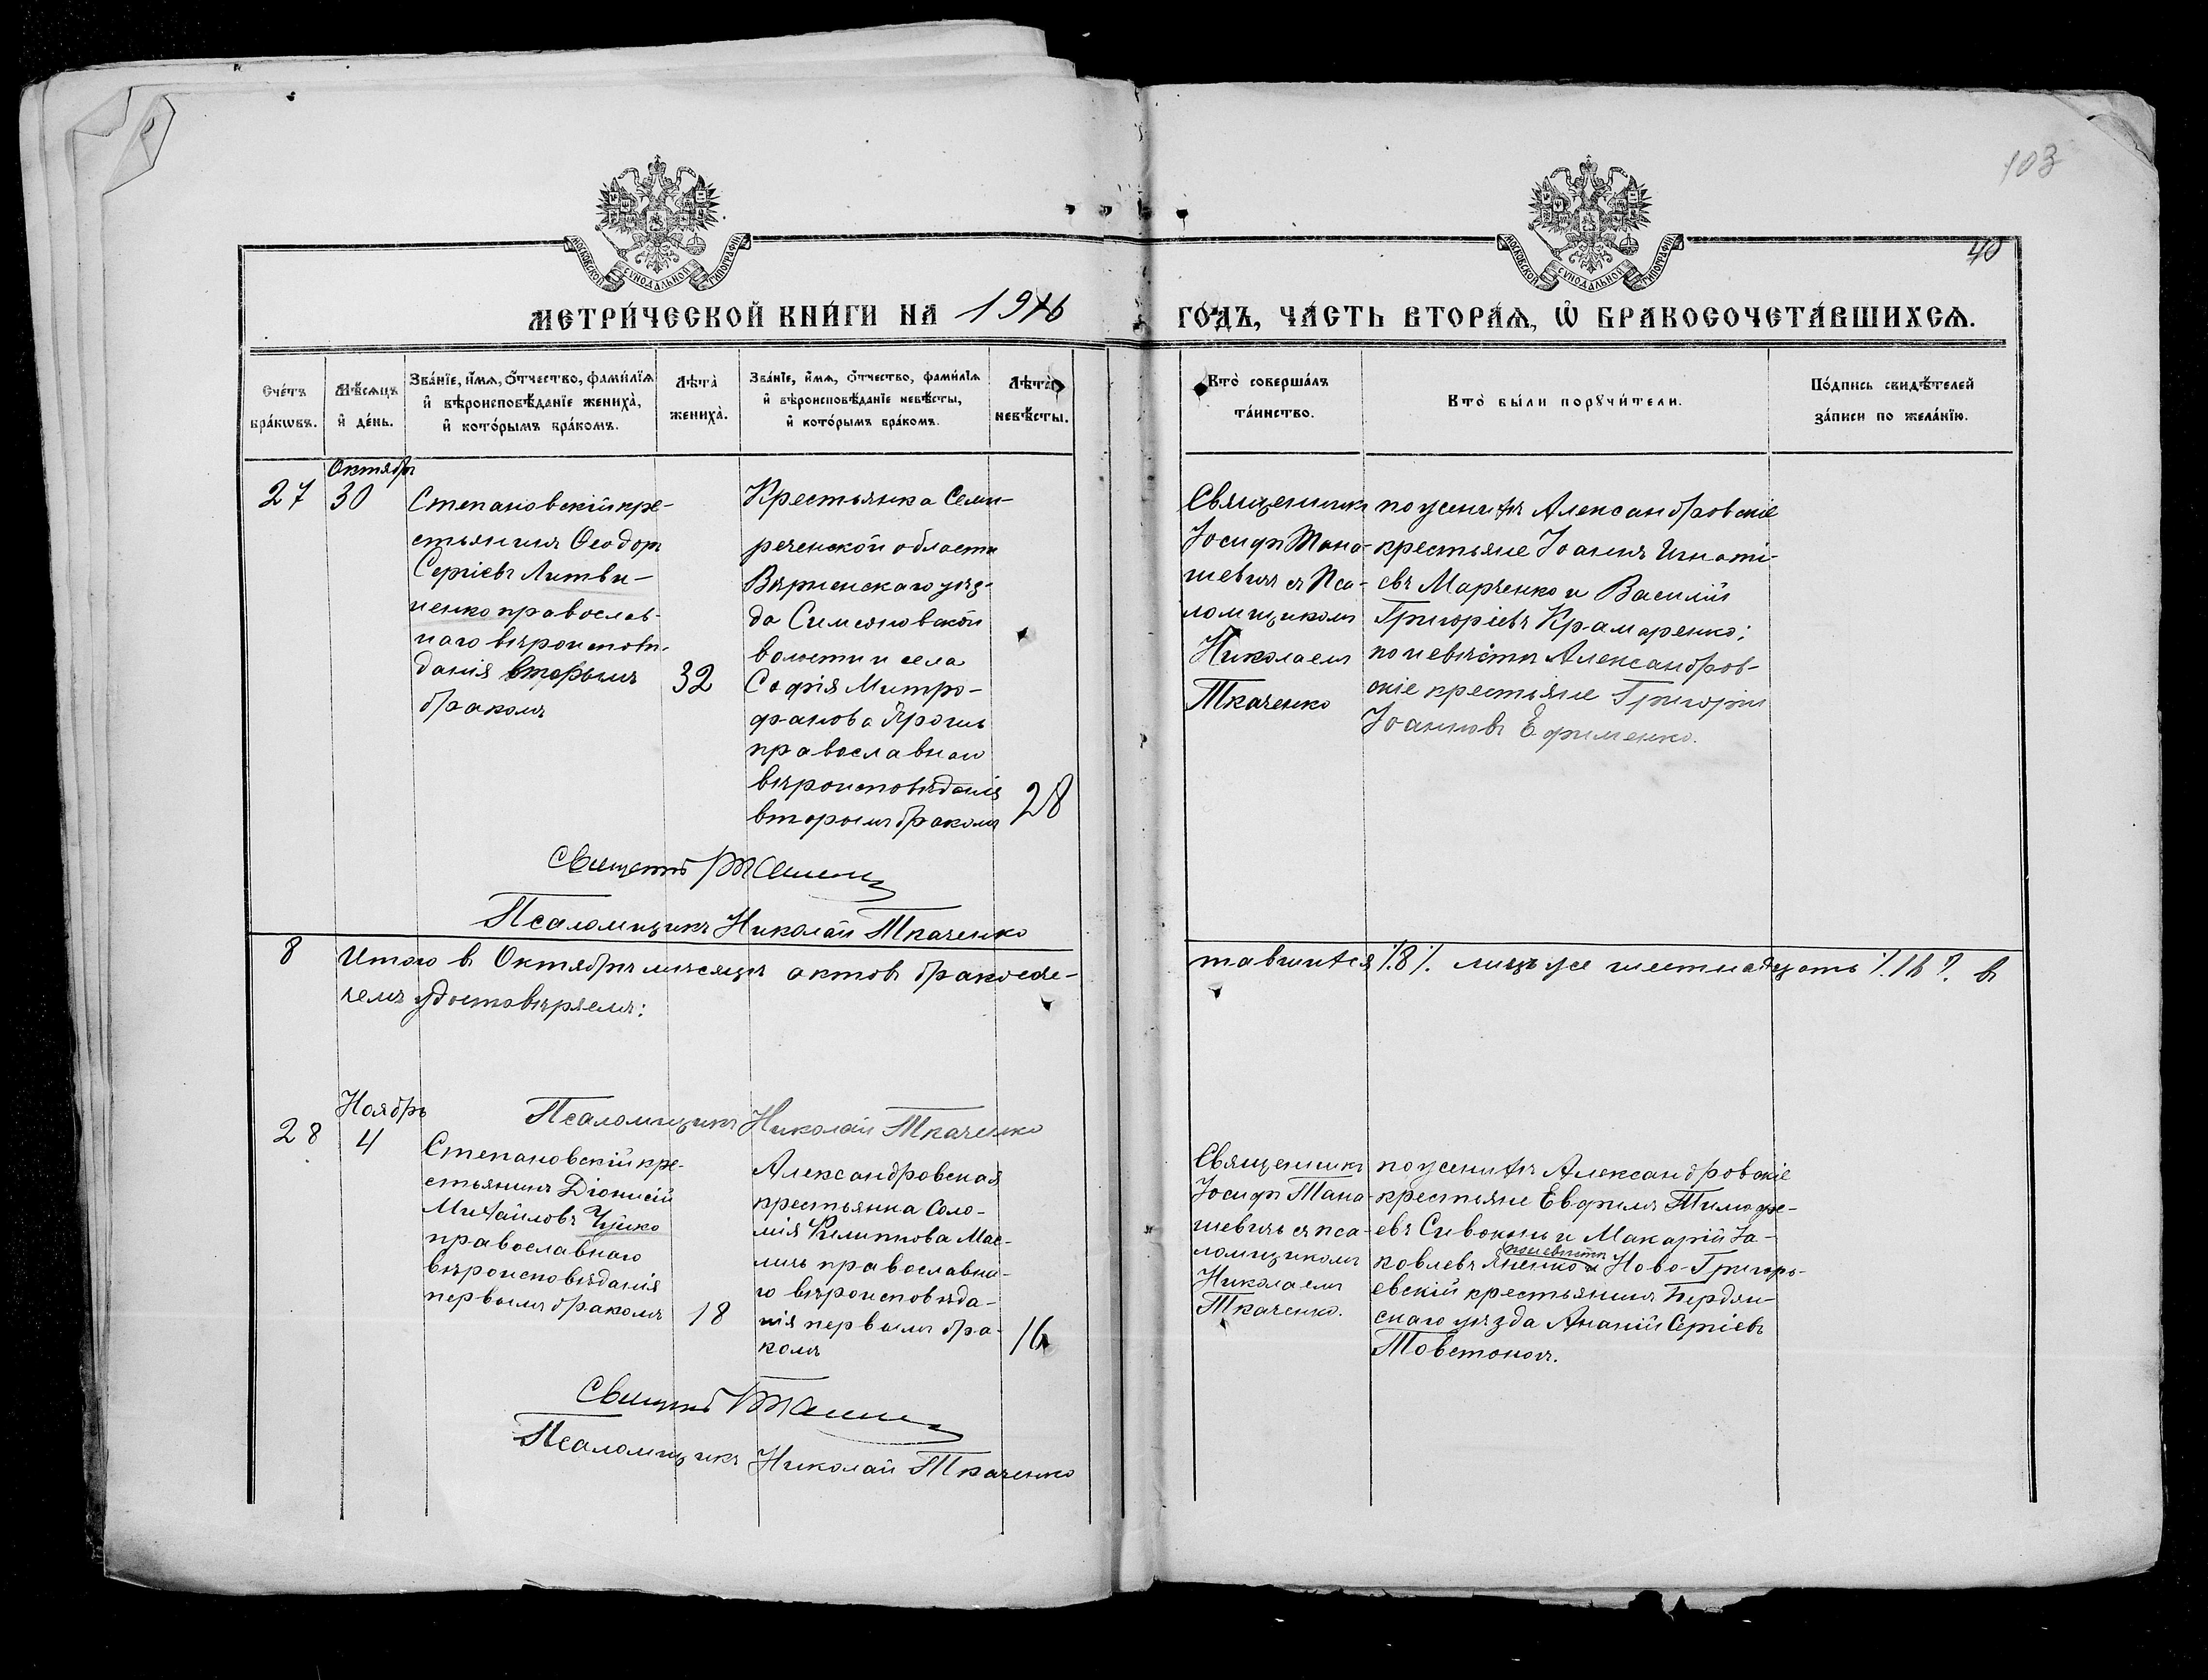 103
40
МОСКОВСКОЙ СѴНОДАЛЬНОЙ ТИПОГРАФІИ
МОСКОВСКОЙ СѴНОДАЛЬНОЙ ТИПОГРАФІИ
МЕТРИ́ЧЕСКОЙ КНИ́ГИ НА 1916 ГО́ДЪ, ЧА́СТЬ ВТОРА́Ѧ, Ѽ БРАКОСОЧЕТА́ВШИХСѦ.
Сче́тъ
бра́кѡвъ.
Мѣ́сѧцъ
и҆ де́нь.
Зва́нїе, и҆́мѧ, ѻ҆́тчество, фами́лїѧ
и҆ вѣроисповѣ́данїе жениха̀,
и҆ кото́рымъ бра́комъ.
Лѣта̀
жениха̀.
Зва́нїе, и҆́мѧ, ѻ҆́тчество, фами́лїѧ
и҆ вѣроисповѣ́данїе невѣ́сты,
и҆ кото́рымъ бра́комъ.
Лѣта̀
невѣ́сты.
Кто̀ соверша́лъ
та́инство.
Кто̀ бы́ли порꙋчи́тели.
По́дпись свидѣ́телей
за́писи по жела́нїю.
27
Октябрь
30
Степановскій кре-
стьянинъ Ѳеодоръ
Сергіевъ Литви-
ненко православ-
наго вѣроисповѣ-
данія вторымъ
бракомъ
32
Крестьянка Семи-
реченской области
Вѣрненскаго уѣз-
да Симсоновской
волости и села
Софія Митро-
фанова Ярошь
православнаго
вѣроисповѣданія
вторымъ бракомъ
28
Священникъ
Іосифъ Тана-
шевичъ съ Пса-
ломщикомъ
Николаемъ
Ткаченко
по женихѣ Александровскіе
крестьяне Іоаннъ Игнаті-
евъ Марченко и Василій
Григоріевъ Крамаренко;
по невѣстѣ Александров-
скіе крестьяне Григорій
Іоанновъ Ефименко.
Псаломщикъ Николай Ткаченко
8
Итого въ Октябрѣ мѣсяцѣ актовъ бракосоче-
тавшихся /.8/. лицъ же шестнадцать /.16/. въ
чемъ удостовѣряемъ:
Псаломщикъ Николай Ткаченко
28
Ноябрь
4
Степановскій кре-
стьянинъ Діонисій
Михайловъ Чуйко
православнаго
вѣроисповѣданія
первымъ бракомъ
18
Александровская
крестьянка Соло-
мія Филиппова Мас-
личь православна-
го вѣроисповѣда-
нія первымъ бра-
комъ
16
Священникъ
Іосифъ Тана-
шевичъ съ пса-
ломщикомъ
Николаемъ
Ткаченко.
по женихѣ Александровскіе
крестьяне Евфимъ Тимофе-
евъ Сивоконь и Макарій Іа-
ковлевъ Яненко по невѣстѣ Ново-Григорь-
евскій крестьянинъ Бердян-
скаго уѣзда Ананій Сергіевъ
Товстоногъ.
Псаломщикъ Николай Ткаченко